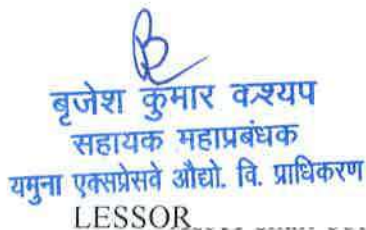 बृजेश कुमार कश्यप
सहायक महाप्रबंधक
यमुना एक्सप्रेसवे औद्यो. वि. प्राधिकरण
LESSOR